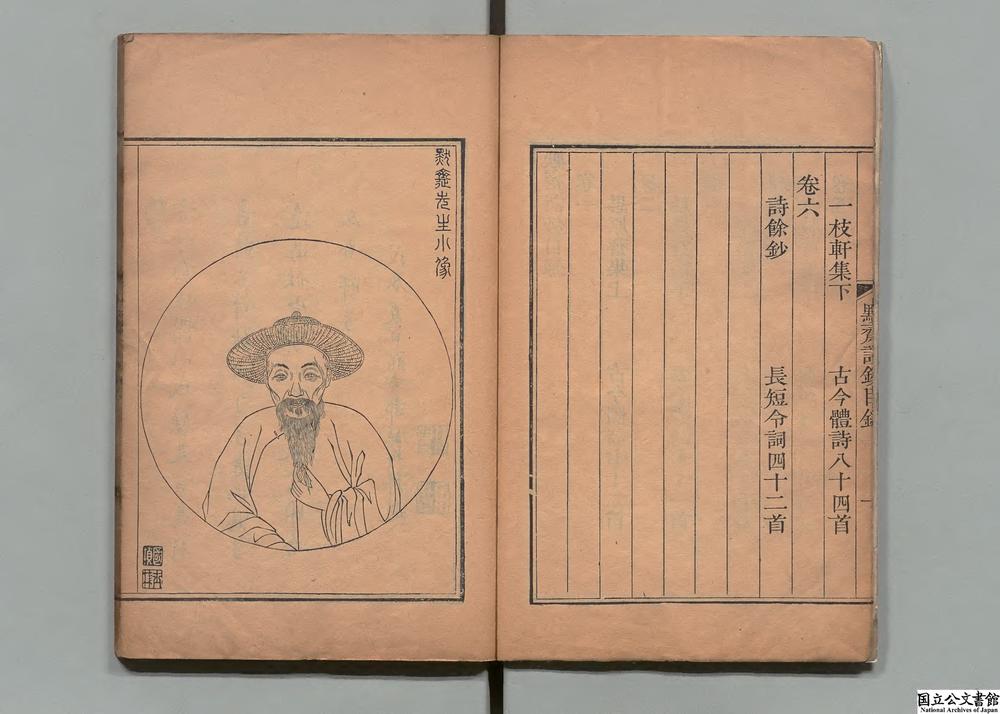 一枝軒集下　古今體詩八十四首
卷六
詩餘鈔　長短令詞四十二首
先生小像
国立公文書館
National Archives of Japan